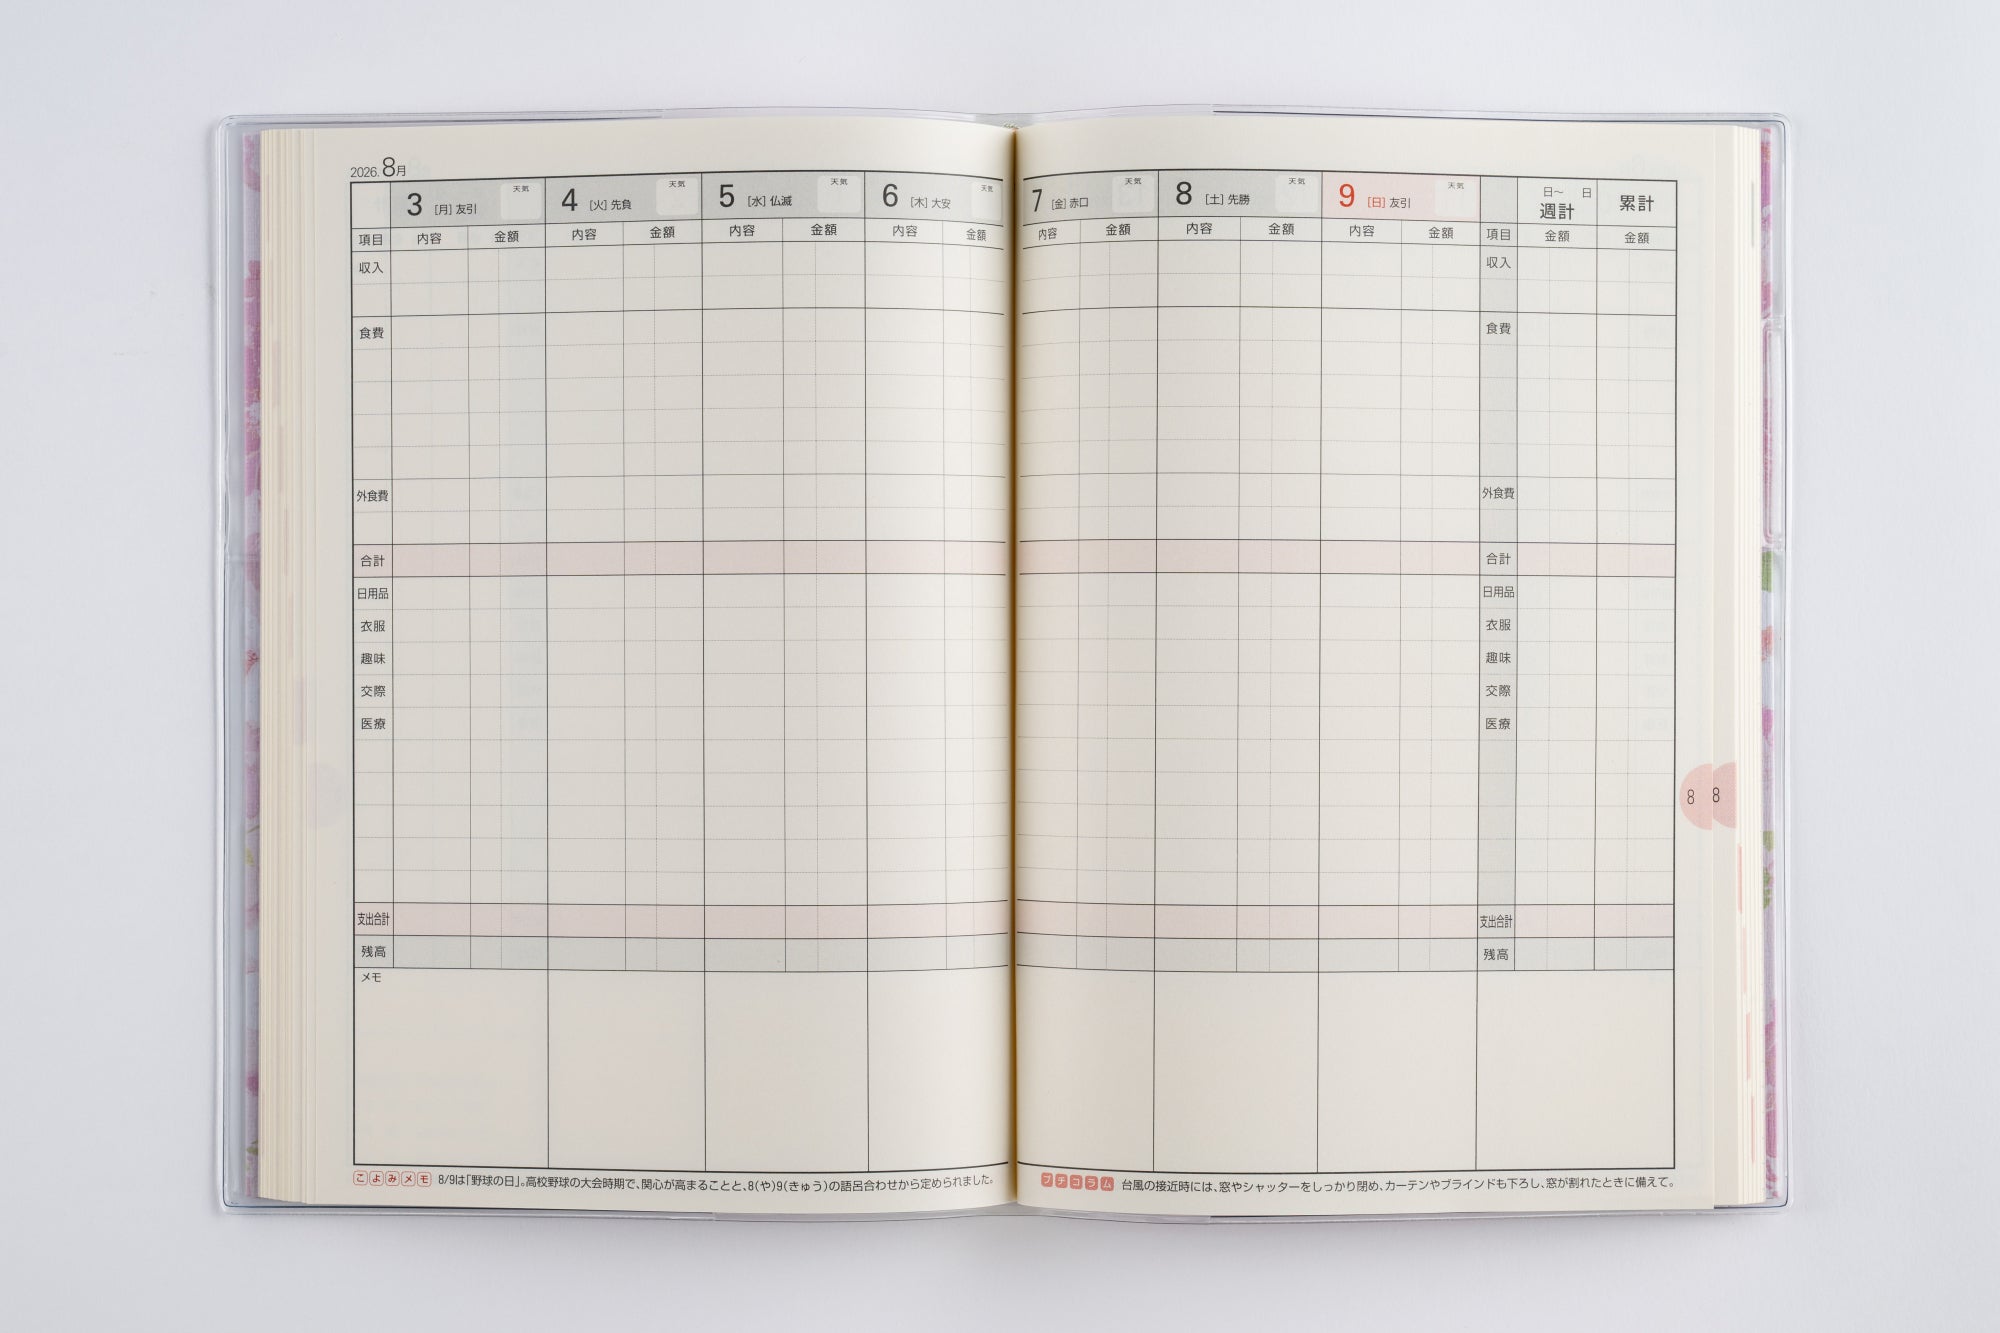 2026. 8月
3 [月] 友引 天気
4 [火] 先負 天気
5 [水] 仏滅 天気
6 [木] 大安 天気
7 [金] 赤口 天気
8 [土] 先勝 天気
9 [日] 友引 天気
日〜 日
週計
累計
項目 内容 金額 内容 金額 内容 金額 内容 金額 内容 金額 内容 金額 内容 金額 項目 金額 金額
収入 収入
食費 食費
外食費 外食費
合計 合計
日用品 日用品
衣服 衣服
趣味 趣味
交際 交際
医療 医療
8 8
支出合計 支出合計
残高 残高
メモ
こよみメモ 8/9は「野球の日」。高校野球の大会時期で、関心が高まることと、8(や)9(きゅう)の語呂合わせから定められました。
プチコラム 台風の接近時には、窓やシャッターをしっかり閉め、カーテンやブラインドも下ろし、窓が割れたときに備えて。